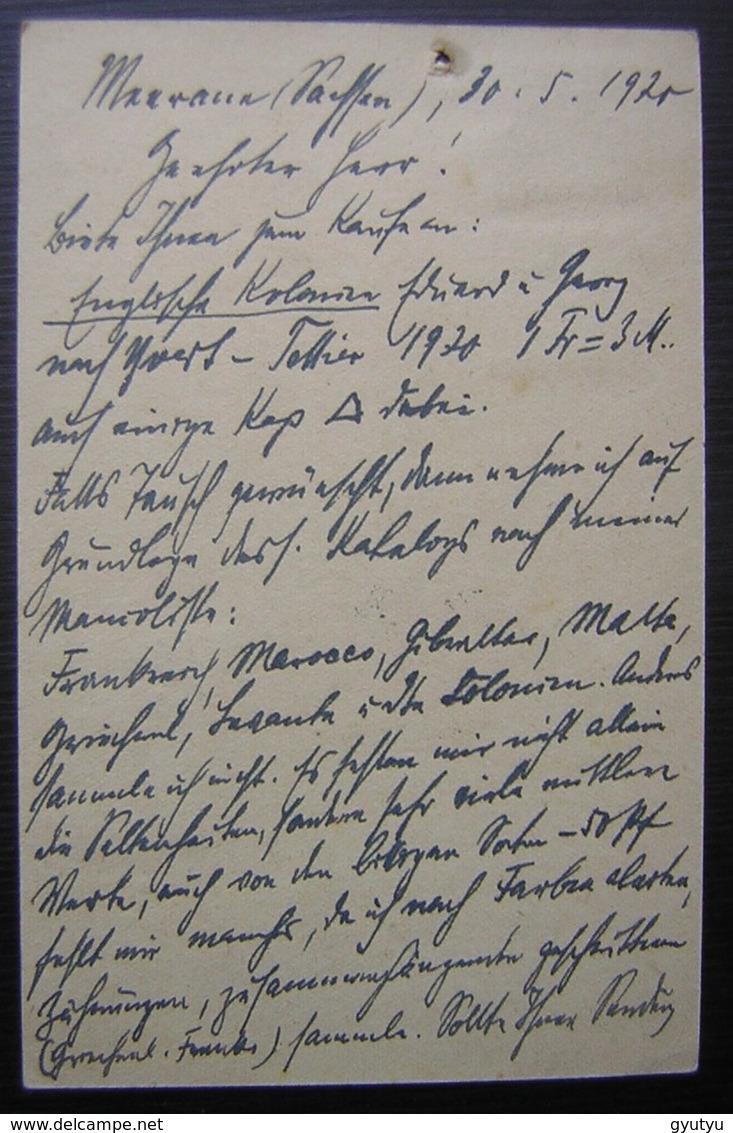 Meerane (Sachsen), 30. 5. 1920
Geehrter Herr!
Biete Ihnen zum Kaufe an:
Englische Kolonien Eduard u Georg
nach Yvert - Tellier 1920 1 Fr = 3 M..
auch einige Kap △ dabei.
Falls Tausch gewünscht, dann nehme ich auf
Grundlage dess. Katalogs nach meiner
Mancoliste:
Frankreich, Marocco, Gibraltar, Malta,
Griechenl, Levante u dte Kolonien. Anders
sammle ich nicht. Es fehlen mir nicht allein
die Seltenheiten, sondern sehr viele mittlere
Werte, auch von den billigen Sorten - 50 Pf
fehlt mir manches, da ich nach Farben abarten,
Zähnungen, zusammenhängende geschnittene
(Griechenl. Frankr) sammle. Sollte Ihnen Sendung
gyutyu
delcampe.net